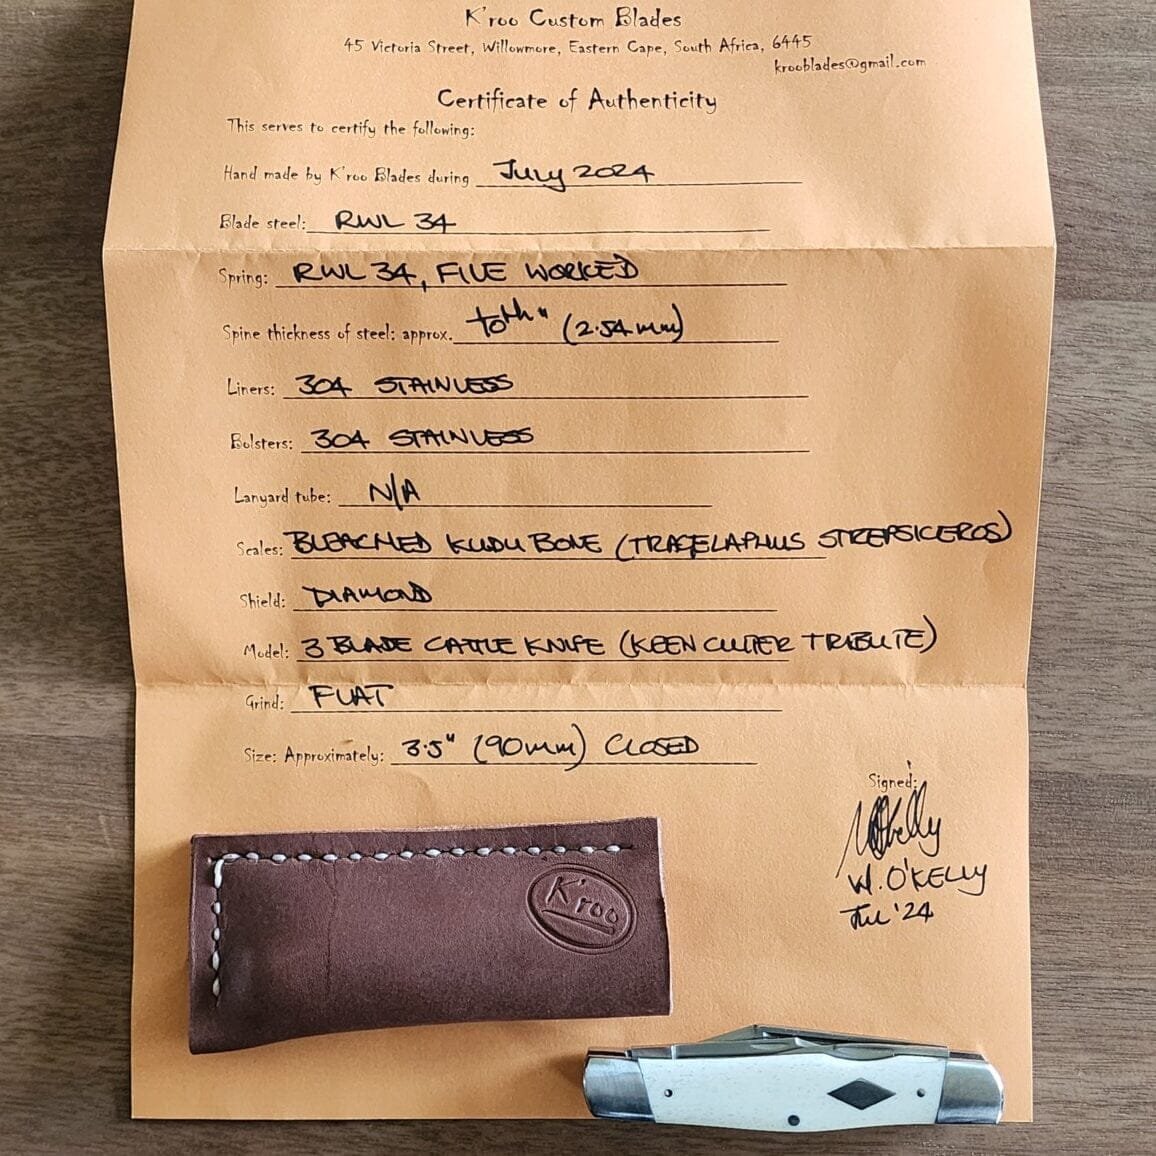 K'roo Custom Blades
45 Victoria Street, Willowmore, Eastern Cape, South Africa, 6445
krooblades@gmail.com
Certificate of Authenticity
This serves to certify the following:
Hand made by K'roo Blades during July 2024
Blade steel: RWL 34
Spring: RWL 34, FILE WORKED
Spine thickness of steel: approx. (2.54mm)
Liners: 304 STAINLESS
Bolsters: 304 STAINLESS
Lanyard tube: N/A
Scales: BLEACHED KUDU BONE (TRAGELAPHUS STREPSICEROS)
Shield: DIAMOND
Model: 3 BLADE CATTLE KNIFE (KEEN CUTTER TRIBUTE)
Grind: FLAT
Size: Approximately: 3.5" (90mm) CLOSED
Signed:
W. O'KELLY
JUL '24
K'roo